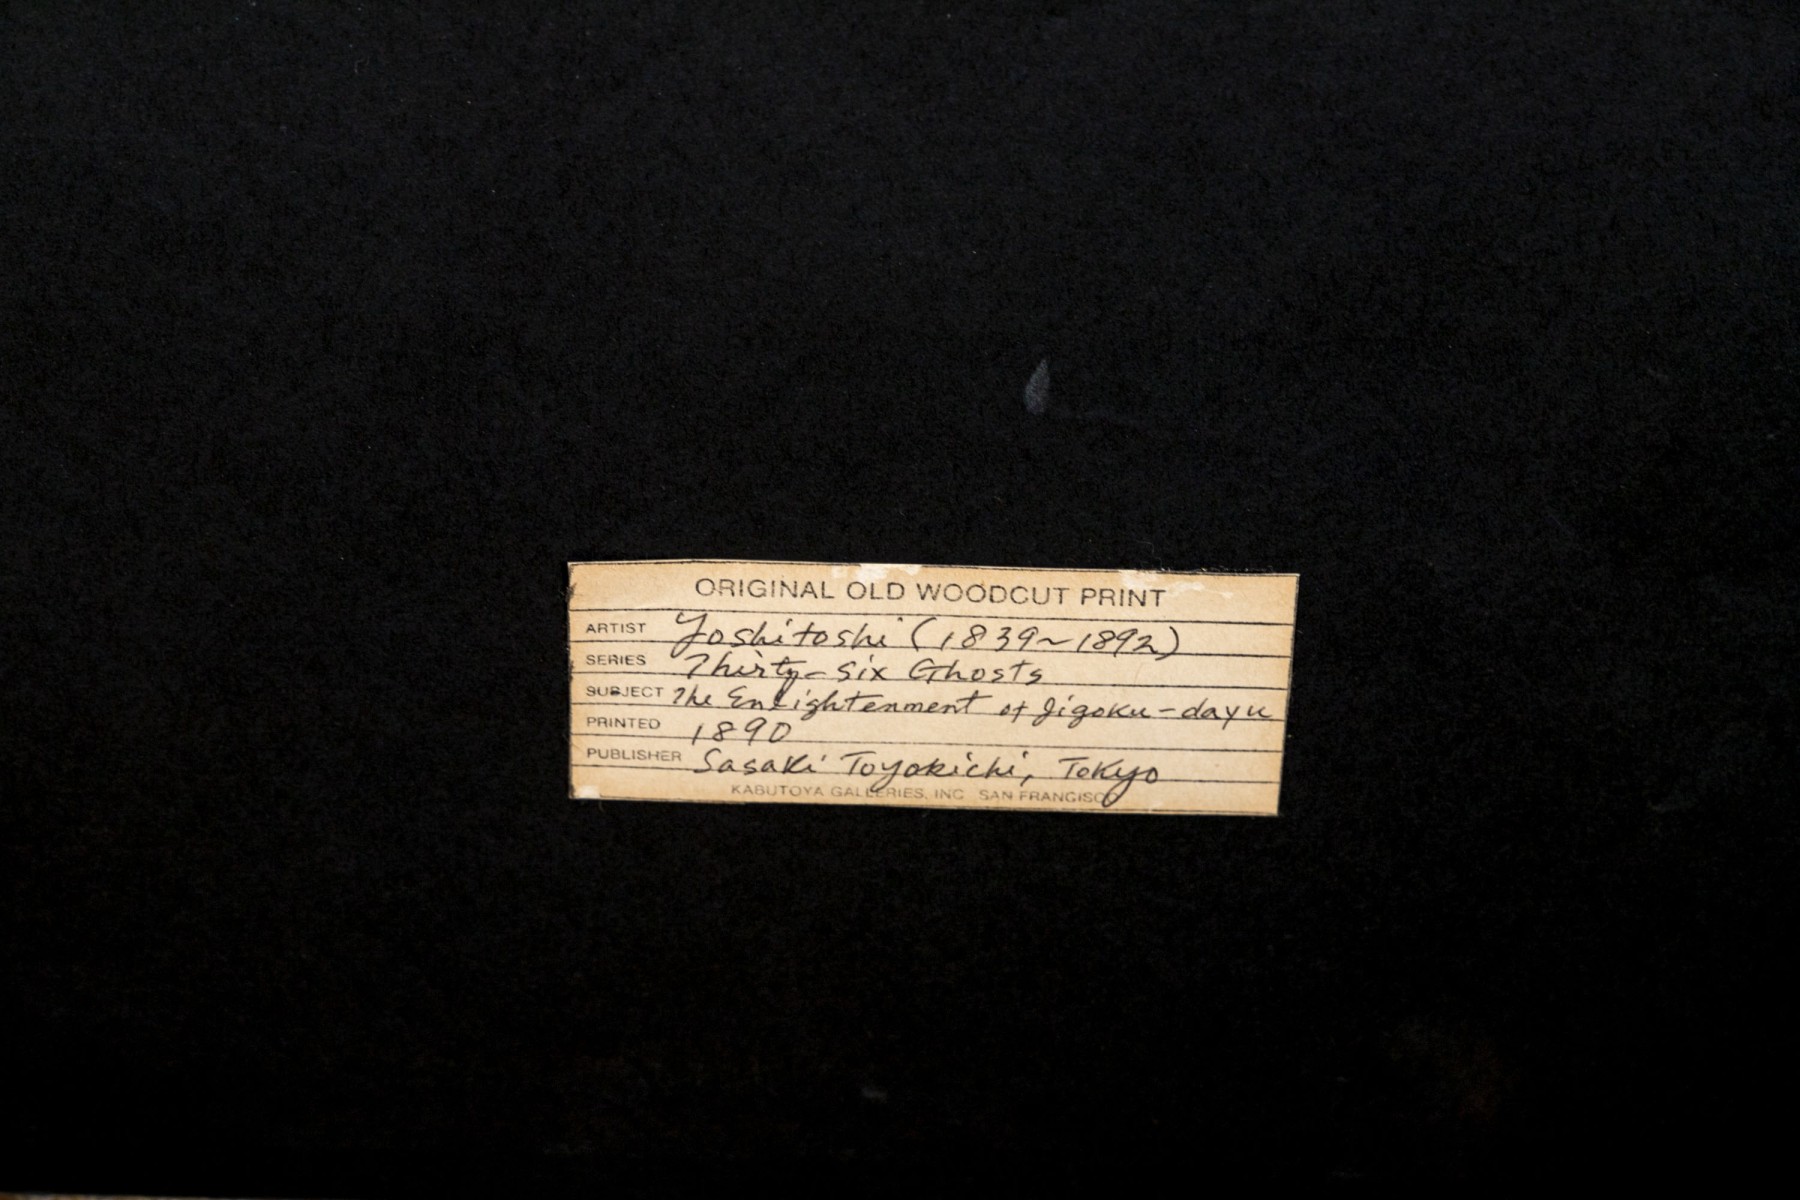 ORIGINAL OLD WOODCUT PRINT
ARTIST Yoshitoshi (1839~1892)
SERIES Thirty-six Ghosts
SUBJECT The Enlightenment of Jigoku-dayu
PRINTED 1890
PUBLISHER Sasaki Toyokichi, Tokyo
KABUTOYA GALLERIES, INC SAN FRANCISCO